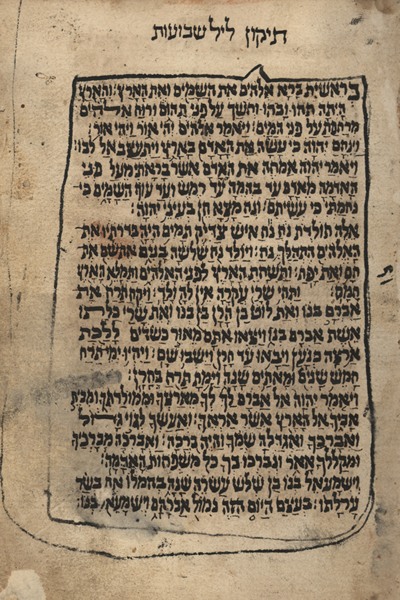 תיקון ליל שבועות
בראשית ברא אלהים את השמים ואת הארץ: והארץ
היתה תהו ובהו וחשך על פני תהום ורוח אלהים
מרחפת על פני המים: ויאמר אלהים יהי אור ויהי אור:
וינחם יהוה כי עשה את האדם בארץ ויתעצב אל לבו:
ויאמר יהוה אמחה את האדם אשר בראתי מעל פני
האדמה מאדם עד בהמה עד רמש ועד עוף השמים כי
נחמתי כי עשיתם: ונח מצא חן בעיני יהוה:
אלה תולדת נח נח איש צדיק תמים היה בדרתיו את
האלהים התהלך נח: ויולד נח שלשה בנים את שם את
חם ואת יפת: ותשחת הארץ לפני האלהים ותמלא הארץ
חמס: ותהי שרי עקרה אין לה ולד: ויקח תרח את
אברם בנו ואת לוט בן הרן בן בנו ואת שרי כלתו
אשת אברם בנו ויצאו אתם מאור כשדים ללכת
ארצה כנען ויבאו עד חרן וישבו שם: ויהיו ימי תרח
חמש שנים ומאתים שנה וימת תרח בחרן:
ויאמר יהוה אל אברם לך לך מארצך וממולדתך ומבית
אביך אל הארץ אשר אראך: ואעשך לגוי גדול
ואברכך ואגדלה שמך והיה ברכה: ואברכה מברכיך
ומקללך אאר ונברכו בך כל משפחות האדמה:
וישמעאל בנו בן שלש עשרה שנה בהמלו את בשר
ערלתו: בעצם היום הזה נמול אברהם וישמעאל בנו: